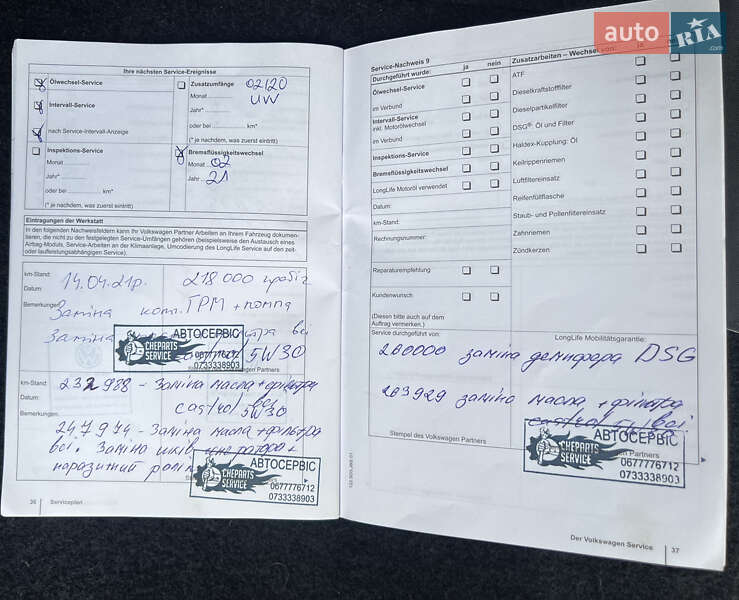 auto RIA
.com
Ihre nächsten Service-Ereignisse
Ölwechsel-Service
Intervall-Service
nach Service-Intervall-Anzeige
Zusatzumfänge 02/20
Monat UW
Jahr*
oder bei km*
(* je nachdem, was zuerst eintritt)
Inspektions-Service
Monat
Jahr*
oder bei km*
(* je nachdem, was zuerst eintritt)
Bremsflüssigkeitswechsel
Monat 02
Jahr 21
Eintragungen der Werkstatt
In den folgenden Nachweisfeldern kann Ihr Volkswagen Partner Arbeiten an Ihrem Fahrzeug dokumen-
tieren, die nicht zu den festgelegten Service-Umfängen gehören (beispielsweise den Austausch eines
Airbag-Moduls, Service-Arbeiten an der Klimaanlage, Umcodierung des LongLife Service auf den zeit-
oder laufleistungsabhängigen Service).
km-Stand:
Datum: 14.04.21р. 218 000 пробіг
Bemerkungen: Заміна комп. ГРМ + помпа
Заміна всі
castrol 5W30
АВТОСЕРВІС
CHEPARTS
SERVICE
0733338903
km-Stand: 232 988 - Заміна масла + фільтра
Datum: castrol всі
5W30
Bemerkungen: 247 974 - Заміна масла + фільтра
всі. Заміна шків +
паразитний ролик
АВТОСЕРВІС
CHEPARTS
SERVICE
0677776712
0733338903
36 Serviceplan
Service-Nachweis 9
Durchgeführt wurde: ja nein
Ölwechsel-Service
im Verbund
Intervall-Service
inkl. Motorölwechsel
im Verbund
Inspektions-Service
Bremsflüssigkeitswechsel
LongLife Motoröl verwendet
Datum:
km-Stand:
Rechnungsnummer:
Reparaturempfehlung
Kundenwunsch
(Diesen bitte auch auf dem
Auftrag vermerken.)
Zusatzarbeiten – Wechsel von: ja
ATF
Dieselkraftstofffilter
Dieselpartikelfilter
DSG®: Öl und Filter
Haldex-Kupplung: Öl
Keilrippenriemen
Luftfiltereinsatz
Reifenfüllflasche
Staub- und Pollenfiltereinsatz
Zahnriemen
Zündkerzen
Service durchgeführt von: LongLife Mobilitätsgarantie:
260000 заміна демпфера DSG
263929 заміна масла + фільтра
всі
Stempel des Volkswagen Partners
АВТОСЕРВІС
CHEPARTS
SERVICE
0677776712
0733338903
Der Volkswagen Service 37